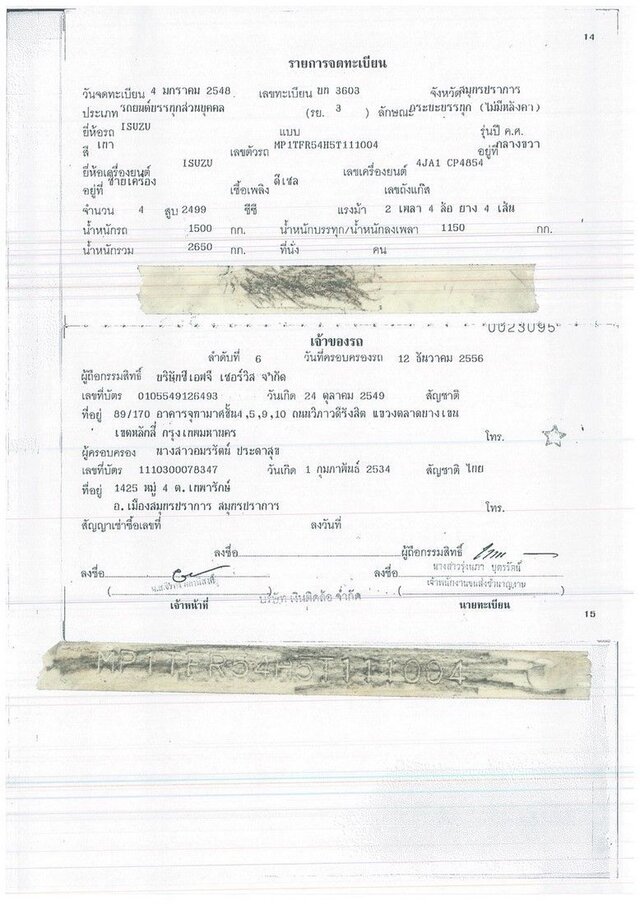 14
รายการจดทะเบียน
วันจดทะเบียน 4 มกราคม 2548 เลขทะเบียน บท 3603 จังหวัด สมุทรปราการ
ประเภท รถยนต์บรรทุกส่วนบุคคล (รย. 3 ) ลักษณะ กระบะบรรทุก (ไม่มีหลังคา)
ยี่ห้อรถ ISUZU แบบ รุ่นปี ค.ศ.
สี เทา เลขตัวรถ MP1TFR54H5T111004 อยู่ที่ กลางขวา
ยี่ห้อเครื่องยนต์ ISUZU เลขเครื่องยนต์ 4JA1 CP4854
อยู่ที่ ซ้ายเครื่อง เชื้อเพลิง ดีเซล เลขถังแก๊ส
จำนวน 4 สูบ 2499 ซีซี แรงม้า 2 เพลา 4 ล้อ ยาง 4 เส้น
น้ำหนักรถ 1500 กก. น้ำหนักบรรทุก/น้ำหนักลงเพลา 1150 กก.
น้ำหนักรวม 2650 กก. ที่นั่ง คน
0023095
เจ้าของรถ
ลำดับที่ 6 วันที่ครอบครองรถ 12 ธันวาคม 2556
ผู้ถือกรรมสิทธิ์ บริษัทซีเอฟจี เซอร์วิส จำกัด
เลขที่บัตร 0105549126493 วันเกิด 24 ตุลาคม 2549 สัญชาติ
ที่อยู่ 89/170 อาคารจุฑามาศชั้น4,5,9,10 ถนนวิภาวดีรังสิต แขวงตลาดบางเขน
เขตหลักสี่ กรุงเทพมหานคร โทร.
ผู้ครอบครอง นางสาวอมรรัตน์ ประดาสุข
เลขที่บัตร 1110300078347 วันเกิด 1 กุมภาพันธ์ 2534 สัญชาติ ไทย
ที่อยู่ 1425 หมู่ 4 ต.เทพารักษ์
อ.เมืองสมุทรปราการ สมุทรปราการ โทร.
สัญญาเช่าซื้อเลขที่ ลงวันที่
ลงชื่อ ผู้ถือกรรมสิทธิ์
ลงชื่อ ลงชื่อ นางสาวรุ่งนภา บุตรรัตน์
( ) ( เจ้าพนักงานขนส่งชำนาญงาน )
เจ้าหน้าที่ บริษัท เงินติดล้อ จำกัด นายทะเบียน
15
MP1TFR54H5T111004